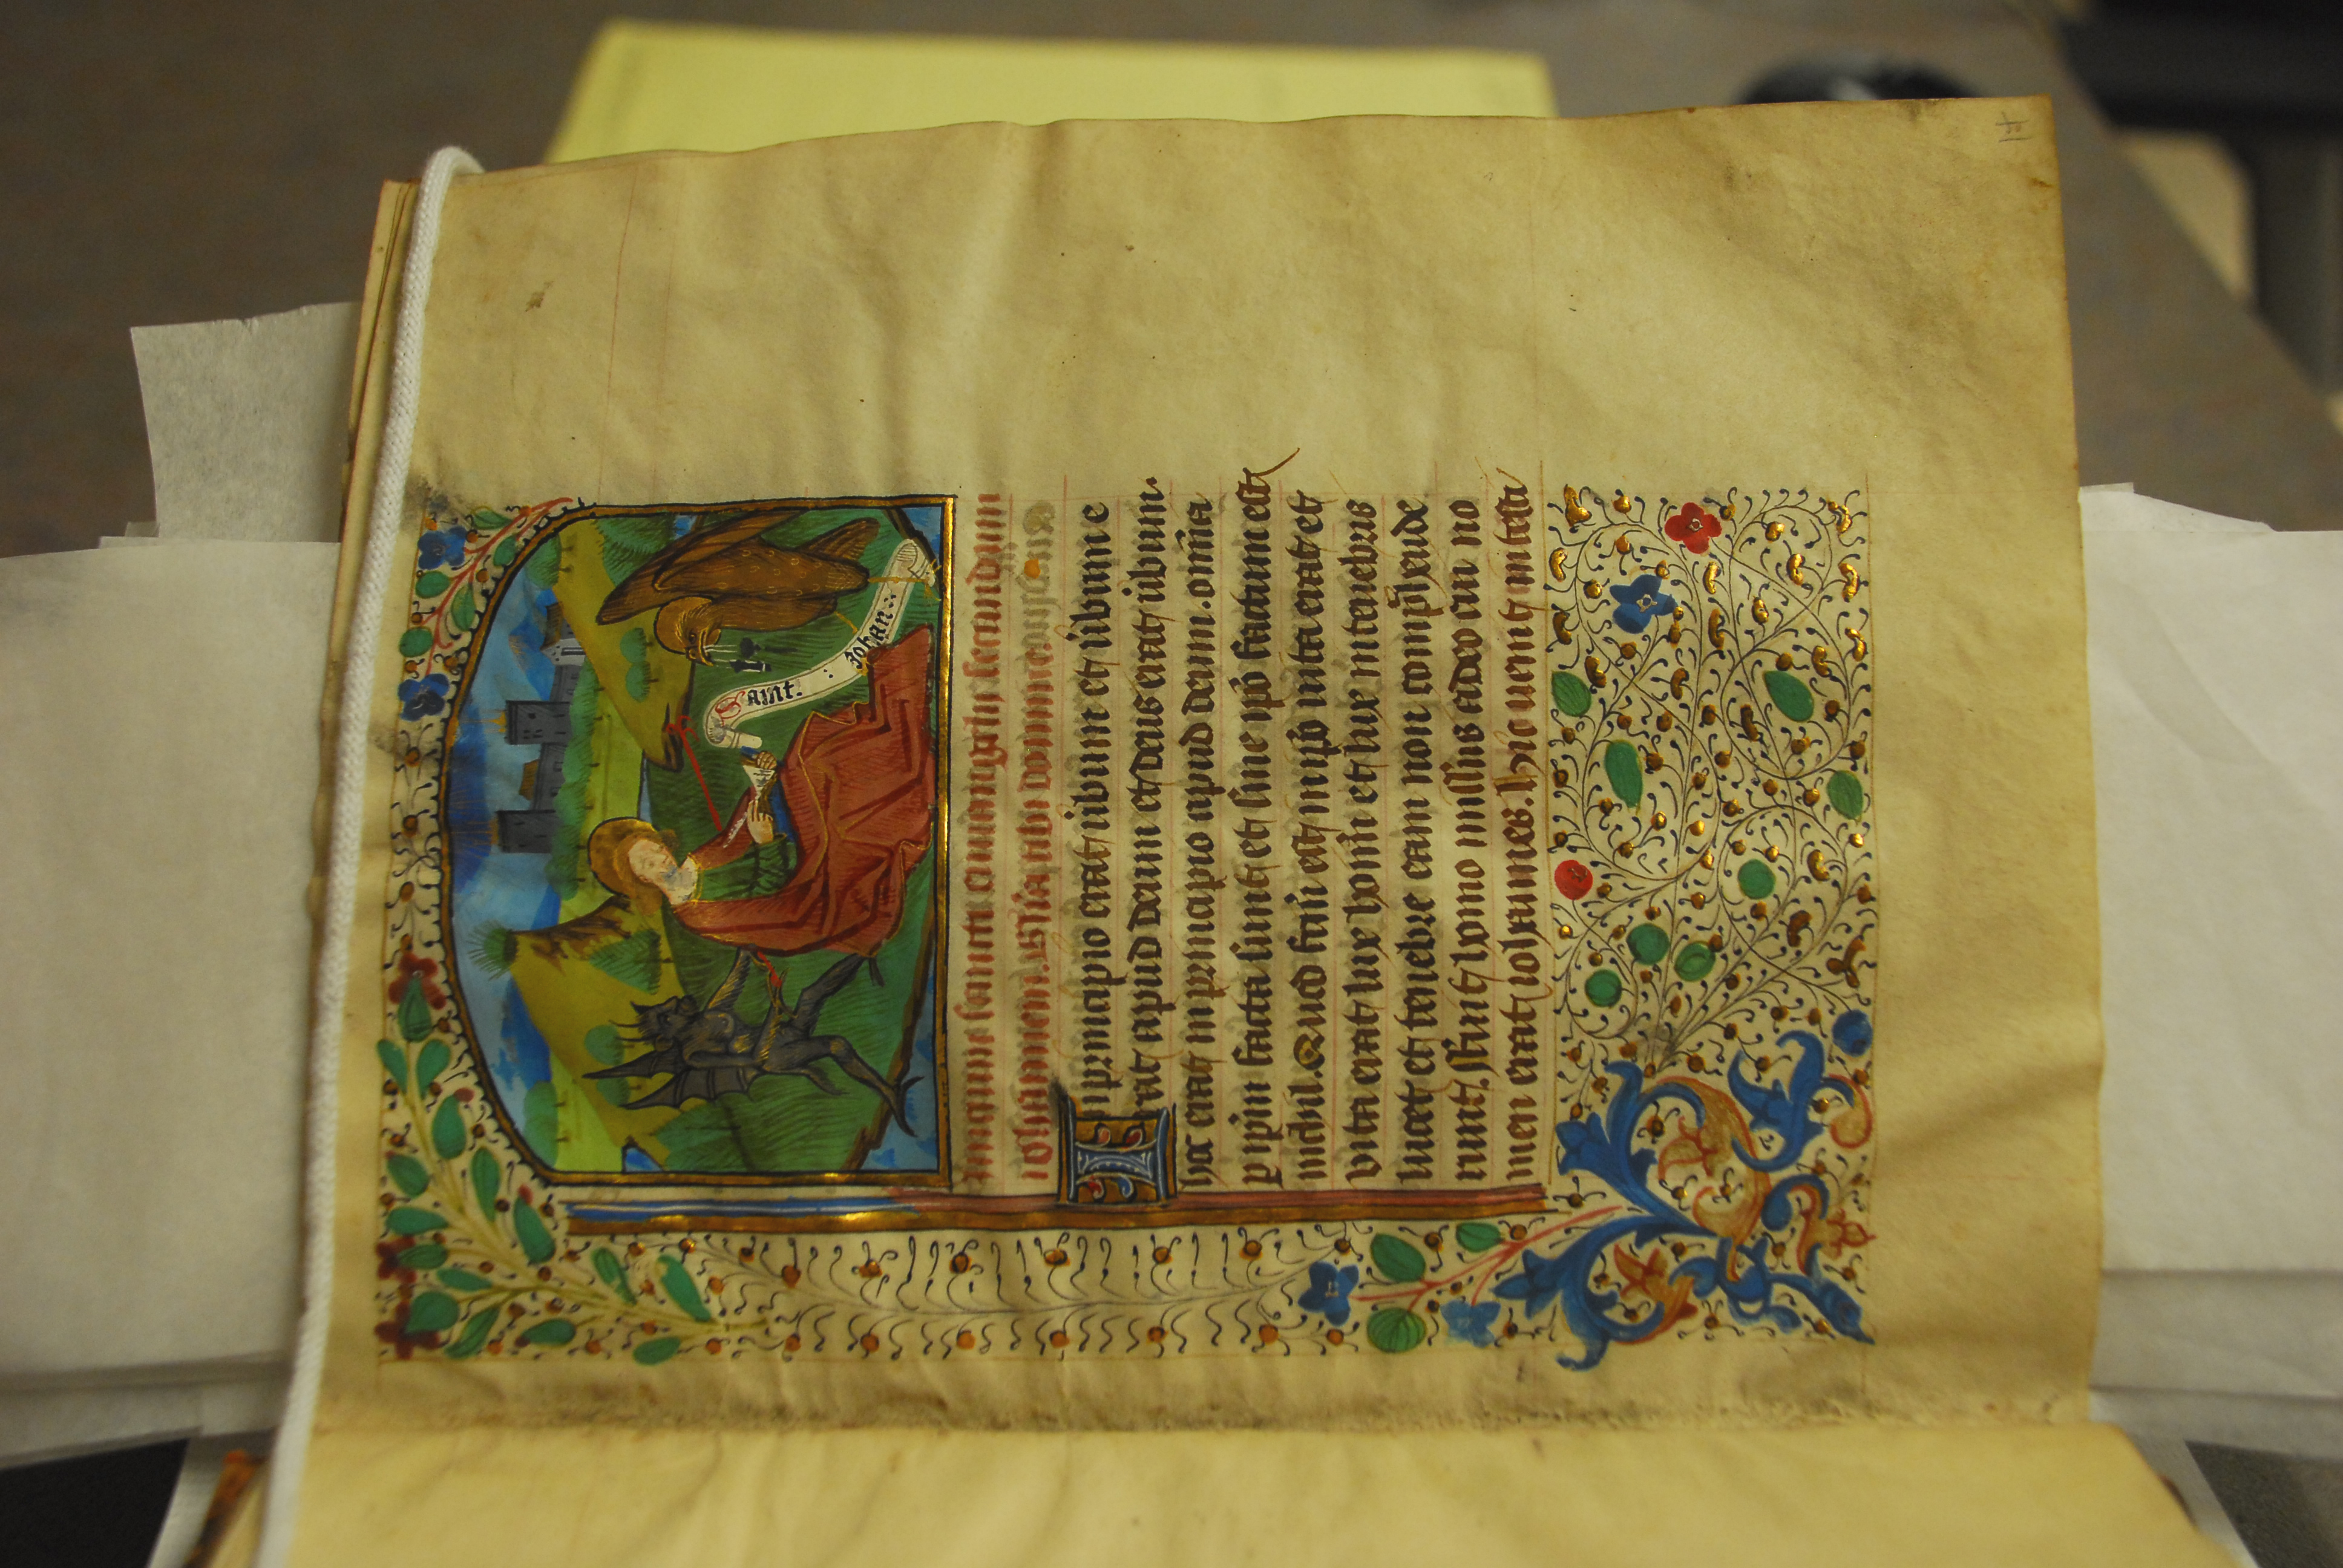 Saint. : Johan::
sancti euuangelij secundum
iohannem. gl'ia tibi domine.
In principio erat uerbum et uerbum e
rat apud deum et deus erat uerbum.
hoc erat in principio apud deum. om̄ia
p ip̄m facta sunt et sine ip̄o factum est
nichil. Quod fc̄m est in ip̄o uita erat et
vita erat lux hom̄ et lux in tenebris
lucet et tenebre eam non comp̄hende
runt. ffuit homo missus a deo cui no
men erat iohannes. hic uenit in testi